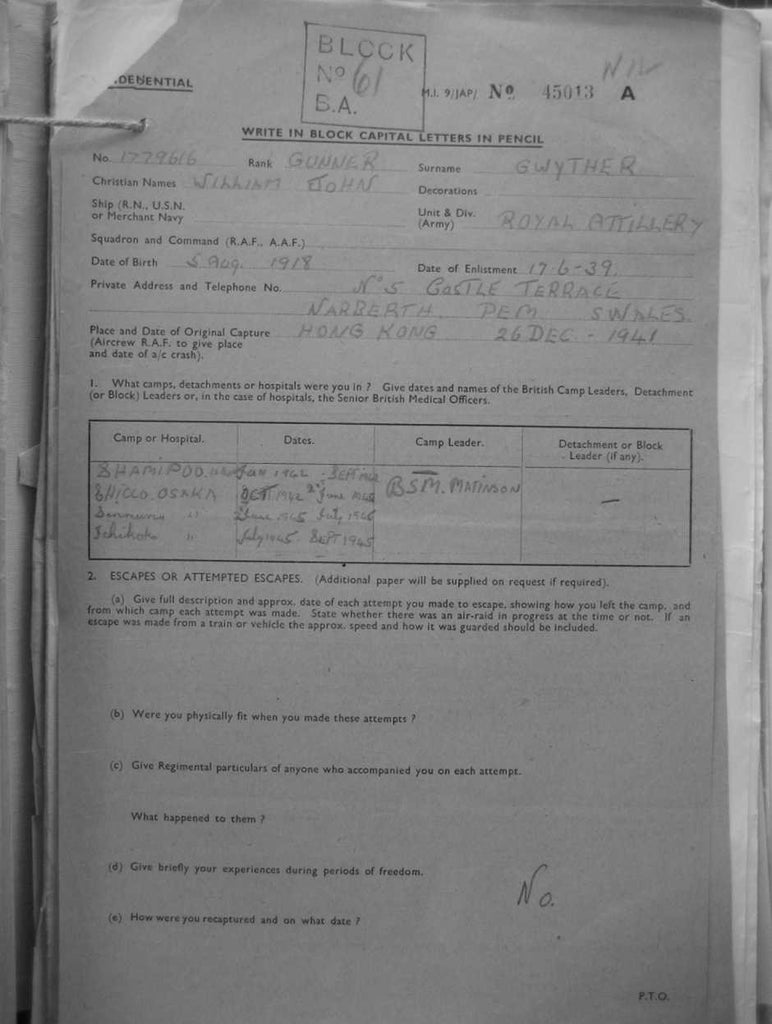 BLOCK
Nº 61
B.A.
DENTIAL
M.I. 9/JAP/ Nº 45013 A
WRITE IN BLOCK CAPITAL LETTERS IN PENCIL
No. 1779616 Rank GUNNER Surname GWYTHER
Christian Names WILLIAM JOHN Decorations
Ship (R.N., U.S.N. or Merchant Navy Unit & Div. (Army) ROYAL ATTILLERY
Squadron and Command (R.A.F., A.A.F.)
Date of Birth 5 Aug. 1918 Date of Enlistment 17-6-39.
Private Address and Telephone No. Nº 5 CASTLE TERRACE
NARBERTH PEM SWALES.
Place and Date of Original Capture HONG KONG 26 DEC - 1941
(Aircrew R.A.F. to give place
and date of a/c crash).
1. What camps, detachments or hospitals were you in ? Give dates and names of the British Camp Leaders, Detachment
(or Block) Leaders or, in the case of hospitals, the Senior British Medical Officers.
Camp or Hospital. Dates. Camp Leader. Detachment or Block
Leader (if any).
SHAMIPOO Jan 1942 - SEPT 1942 —
OSAKA OCT 1942 2 June 1945 BSM. MATINSON —
" June 1945 July 1945
" July 1945. SEPT 1945
2. ESCAPES OR ATTEMPTED ESCAPES. (Additional paper will be supplied on request if required).
(a) Give full description and approx. date of each attempt you made to escape, showing how you left the camp, and
from which camp each attempt was made. State whether there was an air-raid in progress at the time or not. If an
escape was made from a train or vehicle the approx. speed and how it was guarded should be included.
(b) Were you physically fit when you made these attempts ?
(c) Give Regimental particulars of anyone who accompanied you on each attempt.
What happened to them ?
(d) Give briefly your experiences during periods of freedom.
No.
(e) How were you recaptured and on what date ?
P.T.O.